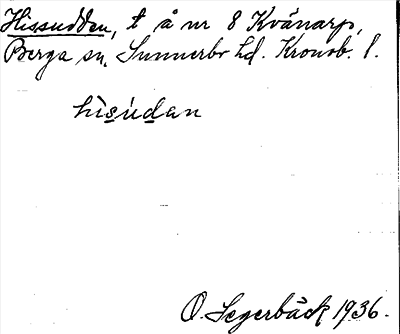 Hissudden, t å nr 8 Kvänarp,
Berga sn. Sunnerbo hd. Kronob. l.
hisudan
O. Segerbäck 1936.